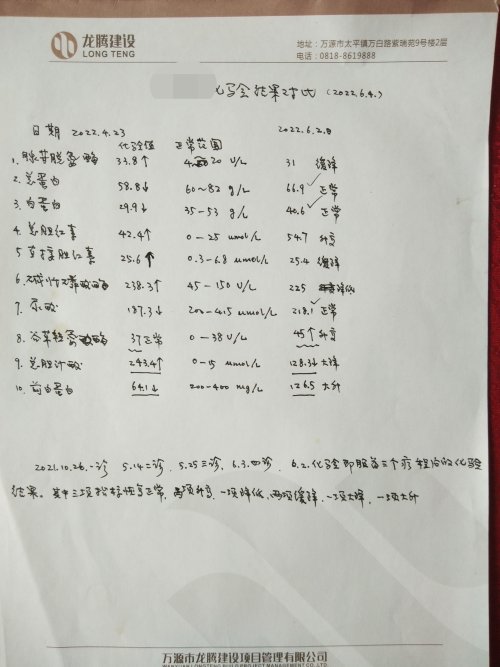 龙腾建设
LONG TENG
地址：万源市太平镇万白路紫瑞苑9号楼2层
电话：0818-8619888
化验结果对比 (2022.6.4.)
日期 2022.4.23 2022.6.2.
化验值 正常范围
1. 腺苷脱氨酶 33.8↑ 4 20 U/L 31 缓降
2. 总蛋白 58.8↓ 60-82 g/L 66.9 ✓ 正常
3. 白蛋白 29.9↓ 35-53 g/L 40.6 ✓ 正常
4. 总胆红素 42.4↑ 0-25 umol/L 54.7 升高
5. 直接胆红素 25.6↑ 0.3-6.8 umol/L 25.4 缓降
6. 碱性磷酸酶 238.3↑ 45-150 U/L 225 降低
7. 尿酸 187.3↓ 200-415 umol/L 218.1 ✓ 正常
8. 谷草转氨酶 37正常 0-38 U/L 45↑ 升高
9. 总胆汁酸 243.4↑ 0-15 umol/L 128.3↓ 大降
10. 前白蛋白 64.1↓ 200-400 mg/L 126.5 大升
2021.10.26.一诊 5.14二诊, 5.25三诊, 6.3.四诊, 6.2.化验即服药三个疗程后的化验
结果。其中三项指标恢复正常, 两项升高, 一项降低, 两项缓降, 一项大降, 一项大升
万源市龙腾建设项目管理有限公司